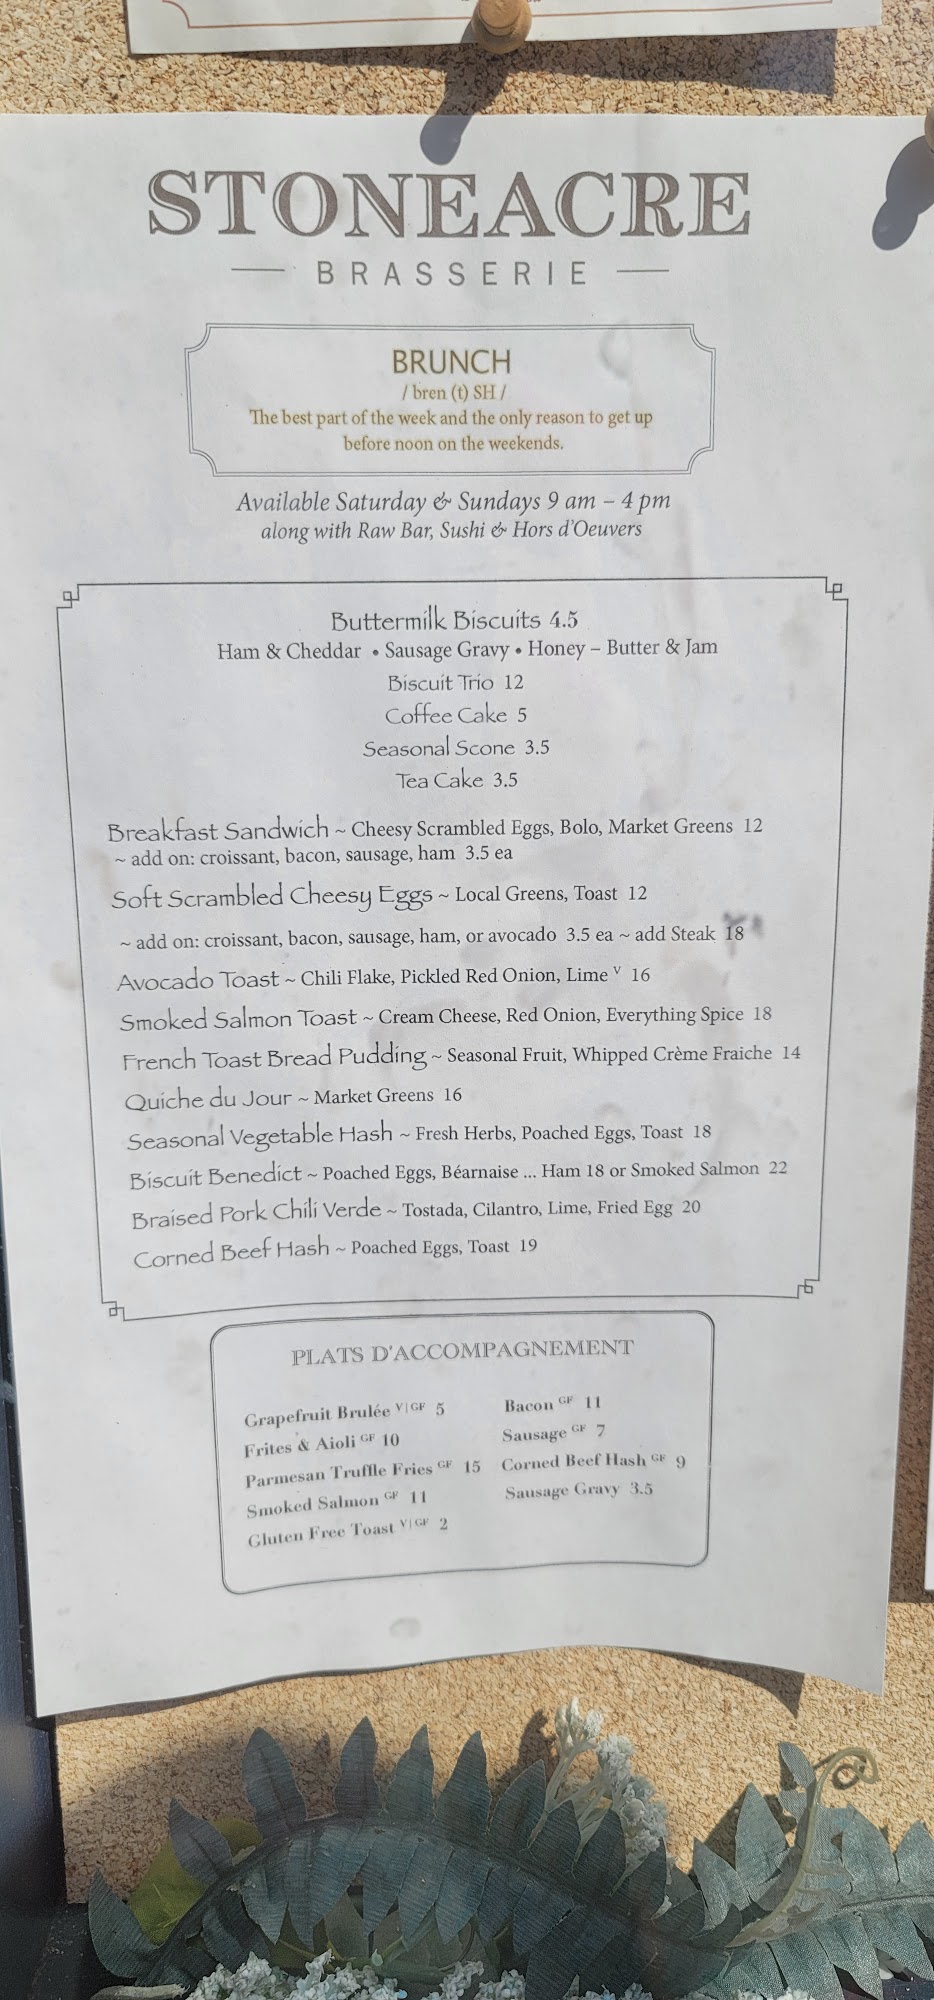 STONEACRE
BRASSERIE
BRUNCH
/ bren (t) SH /
The best part of the week and the only reason to get up
before noon on the weekends.
Available Saturday & Sundays 9 am – 4 pm
along with Raw Bar, Sushi & Hors d'Oeuvers
Buttermilk Biscuits 4.5
Ham & Cheddar • Sausage Gravy • Honey – Butter & Jam
Biscuit Trio 12
Coffee Cake 5
Seasonal Scone 3.5
Tea Cake 3.5
Breakfast Sandwich ~ Cheesy Scrambled Eggs, Bolo, Market Greens 12
~ add on: croissant, bacon, sausage, ham 3.5 ea
Soft Scrambled Cheesy Eggs ~ Local Greens, Toast 12
~ add on: croissant, bacon, sausage, ham, or avocado 3.5 ea ~ add Steak 18
Avocado Toast ~ Chili Flake, Pickled Red Onion, Lime V 16
Smoked Salmon Toast ~ Cream Cheese, Red Onion, Everything Spice 18
French Toast Bread Pudding ~ Seasonal Fruit, Whipped Crème Fraiche 14
Quiche du Jour ~ Market Greens 16
Seasonal Vegetable Hash ~ Fresh Herbs, Poached Eggs, Toast 18
Biscuit Benedict ~ Poached Eggs, Béarnaise ... Ham 18 or Smoked Salmon 22
Braised Pork Chili Verde ~ Tostada, Cilantro, Lime, Fried Egg 20
Corned Beef Hash ~ Poached Eggs, Toast 19
PLATS D'ACCOMPAGNEMENT
Grapefruit Brulée V|GF 5
Frites & Aioli GF 10
Parmesan Truffle Fries GF 15
Smoked Salmon GF 11
Gluten Free Toast V|GF 2
Bacon GF 11
Sausage GF 7
Corned Beef Hash GF 9
Sausage Gravy 3.5